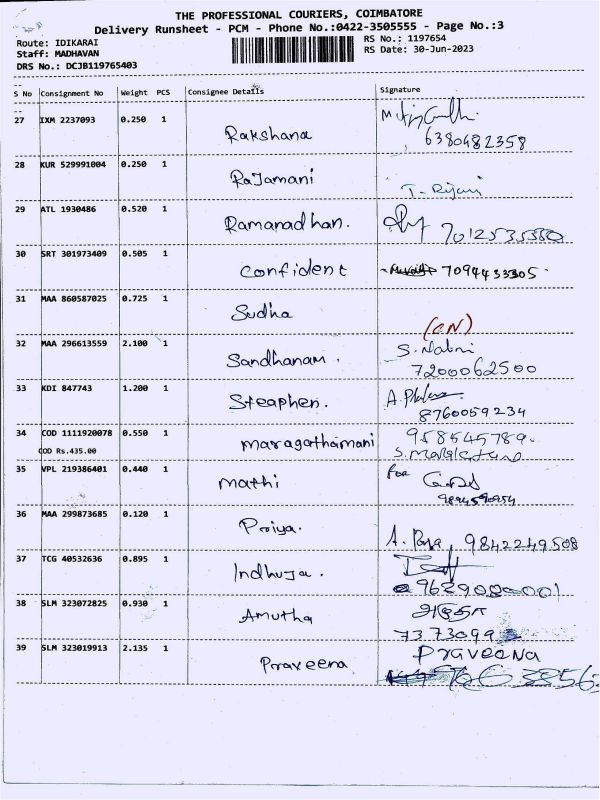 THE PROFESSIONAL COURIERS, COIMBATORE
Delivery Runsheet - PCM - Phone No.:0422-3505555 - Page No.:3
Route: IDIKARAI
RS No.: 1197654
Staff: MADHAVAN
RS Date: 30-Jun-2023
DRS No.: DCJB119765403
S No Consignment No Weight PCS Consignee Details Signature
27 IXM 2237093 0.250 1 Rakshana
6380482358
28 KUR 529991004 0.250 1 Rajamani
29 ATL 1930486 0.520 1 Ramanadhan.
30 SRT 301973409 0.505 1 confident 7094433305
31 MAA 860587025 0.725 1 Sudha
32 MAA 296613559 2.100 1 Sandhanam.
7200062500
33 KDI 847743 1.200 1 Steaphen.
8760059234
34 COD 1111920078 0.550 1 maragathamani 958545789
COD Rs.435.00
35 VPL 219386401 0.440 1 mathi For
36 MAA 299873685 0.120 1 Priya. 9842249508
37 TCG 40532636 0.895 1 Indhuja.
38 SLM 323072825 0.930 1 Amutha அமுதா
39 SLM 323019913 2.135 1 Praveena Praveena